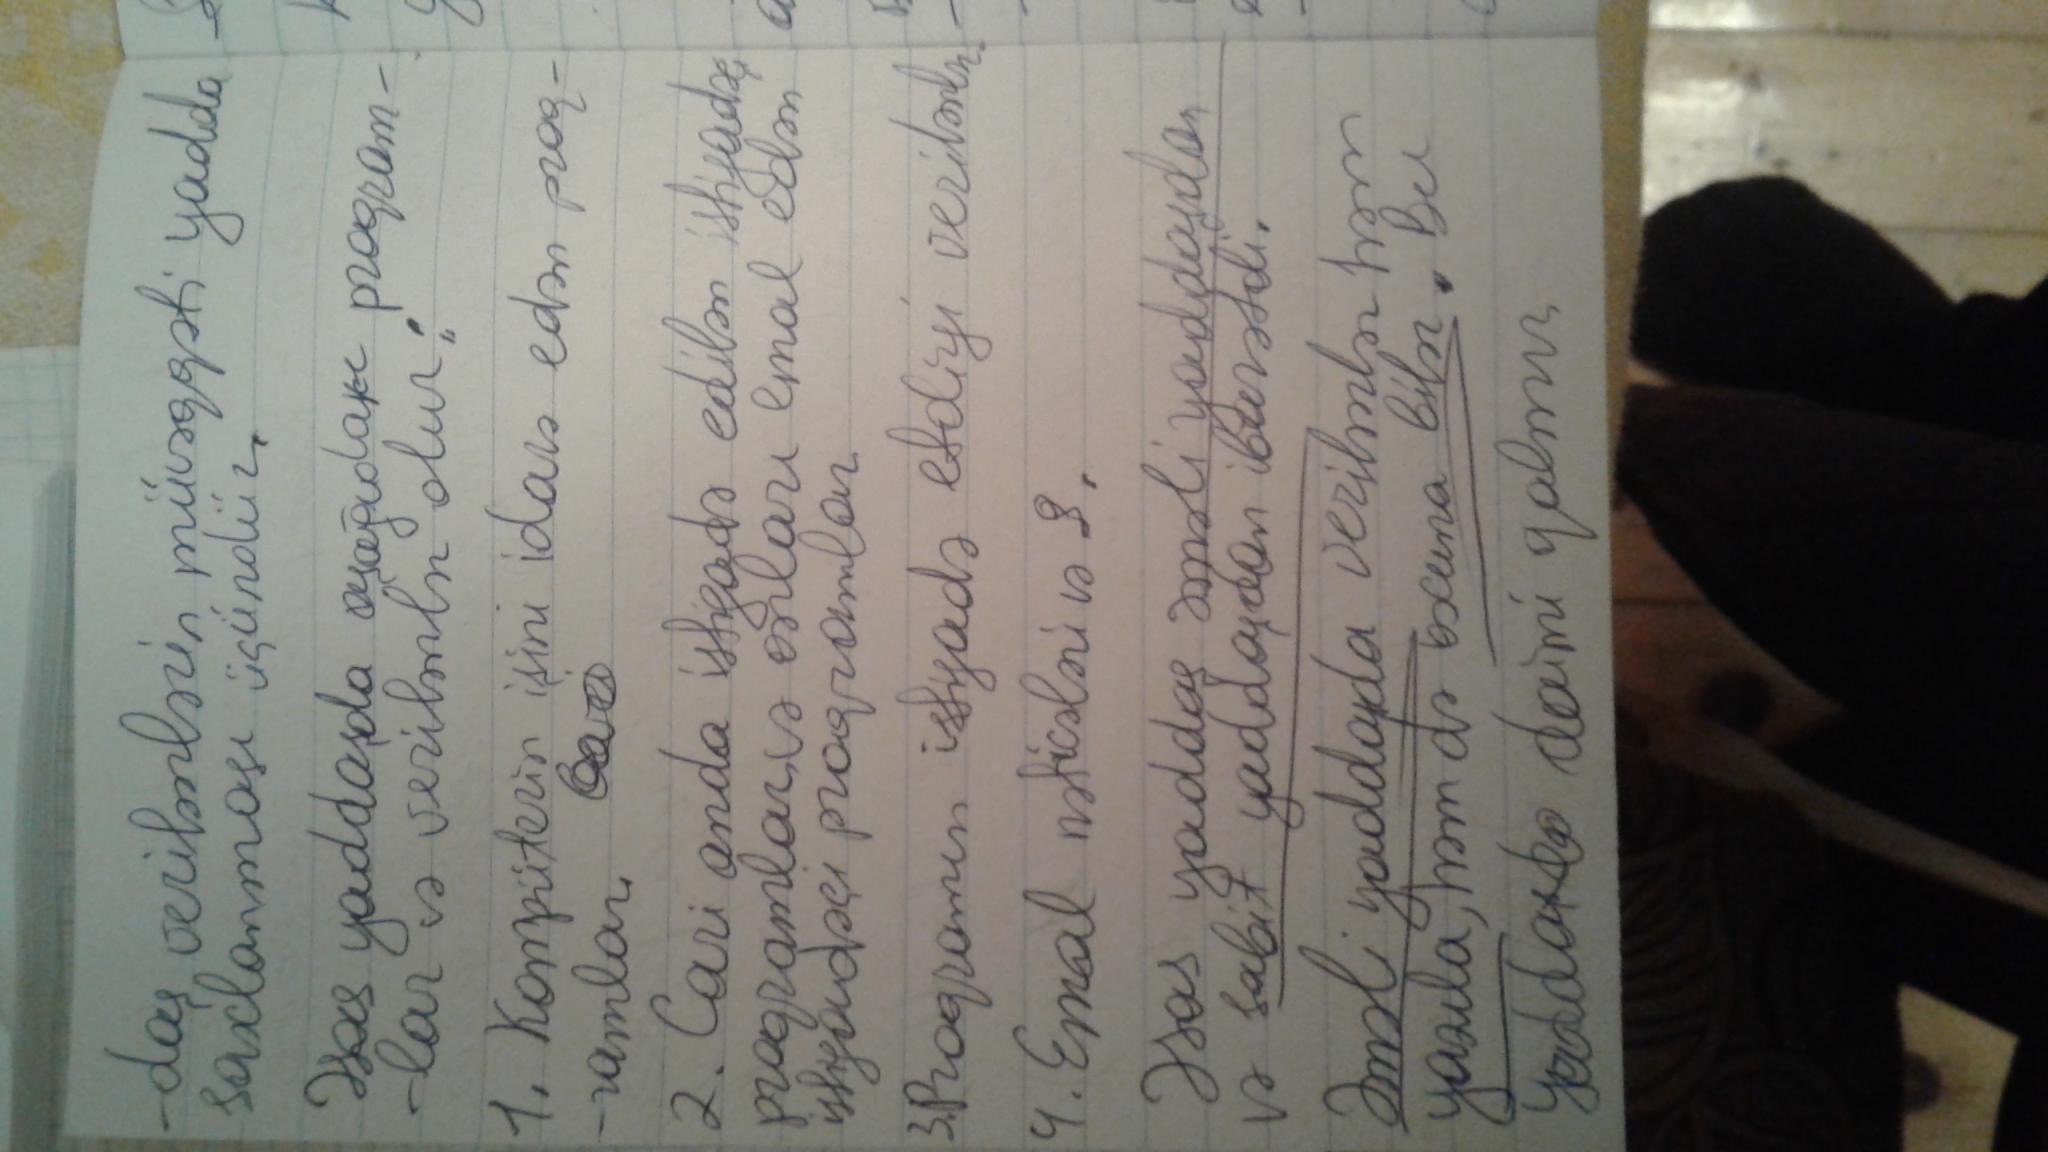 -daş verilənlərin müvəqqəti yadda
saxlanması üçündür.
Əsas yaddaşda aşağıdakı proqram-
-lar və verilənlər olur:
1. Kompüterin işini idarə edən proq-
-ramlar.
2. Cari anda istifadə edilən istifadəçi
proqramları və onları emal edən
istifadəçi proqramlar
3. Proqramın istifadə etdiyi verilənlər.
4. Emal nəticələri və s.
Əsas yaddaş əməli yaddaşdan
və sabit yaddaşdan ibarətdi.
Əməli yaddaşda verilənlər həm
yazıla, həm də oxuna bilər. Bu
daimi qalmır